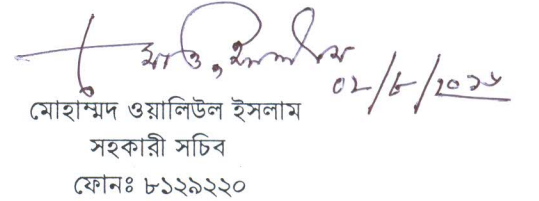 ০২/৮/২০১৮
মোহাম্মদ ওয়ালিউল ইসলাম
সহকারী সচিব
ফোনঃ ৮১২৯২২০